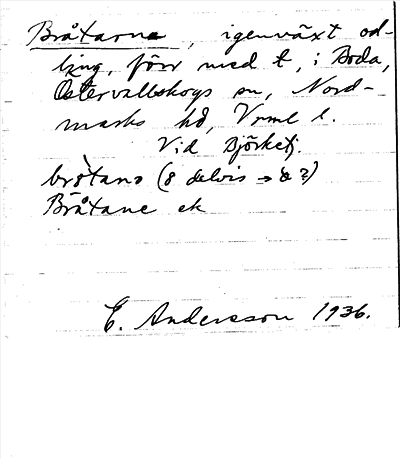 Bråtarne, igenväxt od-
ling, förr med t, i Boda,
Östervallskogs sn, Nord-
marks hd, Vrml l.
Vid Björketj.
bròtana (8 delvis → å ?)
Bråtane ek
E. Andersson 1936.